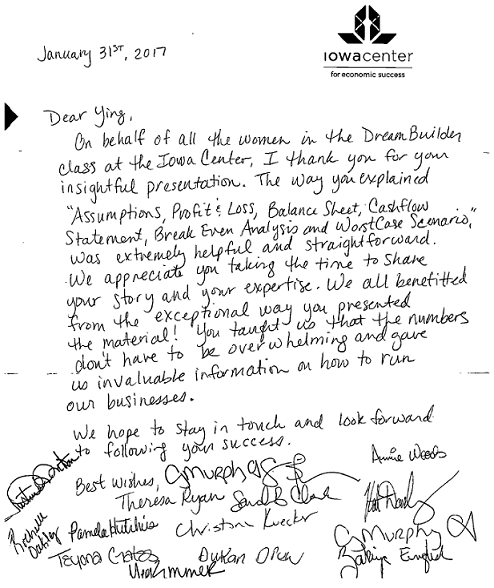 iowacenter
for economic success
January 31ST, 2017
Dear Ying,
On behalf of all the women in the DreamBuilder
class at the Iowa Center, I thank you for your
insightful presentation. The way you explained
"Assumptions, Profit & Loss, Balance Sheet, Cashflow
Statement, Break Even Analysis and Worst Case Scenario,"
was extremely helpful and straightforward.
We appreciate you taking the time to share
your story and your expertise. We all benefitted
from the exceptional way you presented
the material! You taught us that the numbers
don't have to be overwhelming and gave
us invaluable information on how to run
our businesses.
We hope to stay in touch and look forward
to following your success.
Best Wishes,
Annie Woods
Theresa Ryan Sarah Clark
Pamela Hutchins Christina